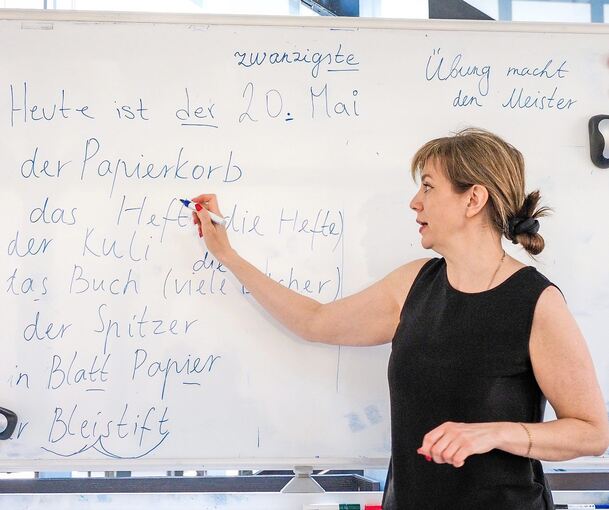 zwanzigste
Heute ist der 20. Mai
Übung macht
den Meister
der Papierkorb
das Heft (die Hefte)
der Kuli
das Buch (viele Bücher)
die
der Spitzer
in Blatt Papier
r Bleistift